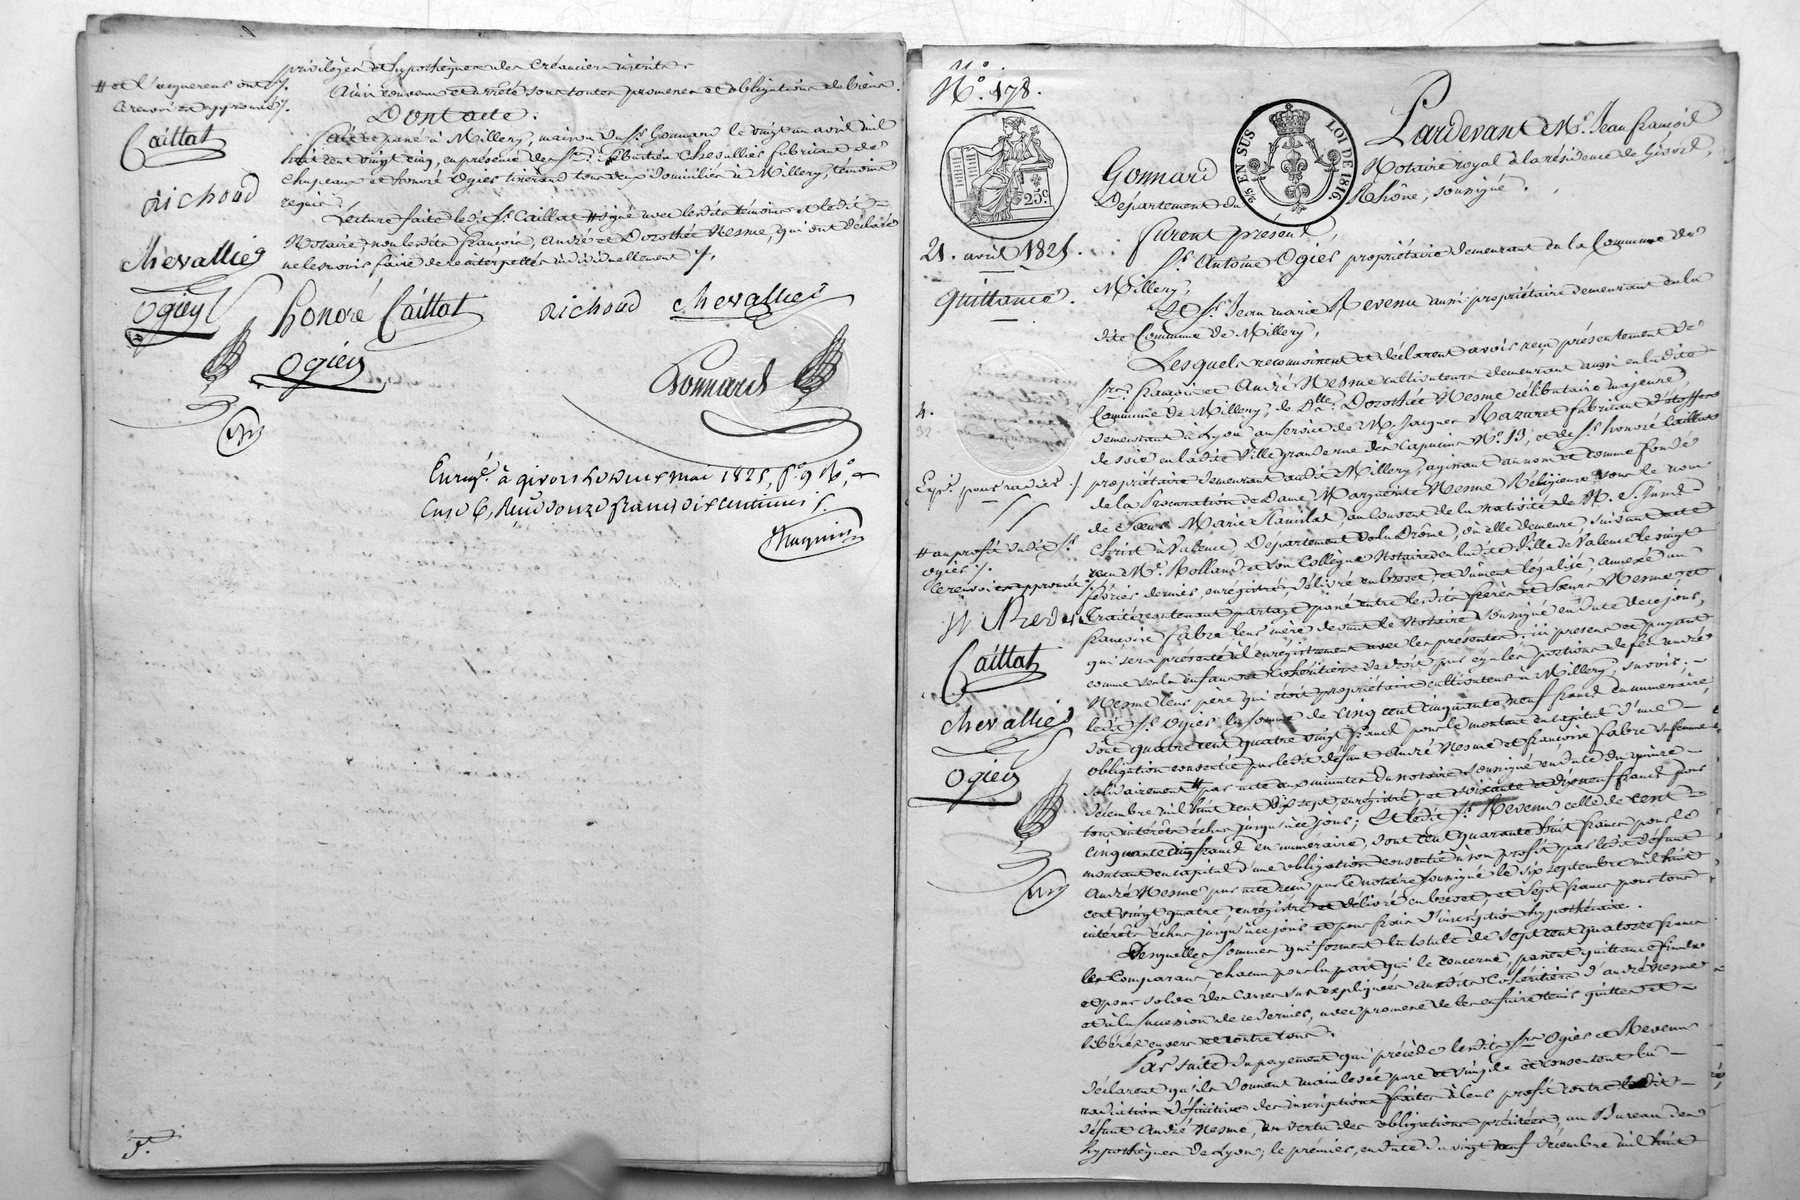 privilèges et hypothèques des créanciers inscrits.
# et l'acquereur ont ./.
le renvoi est approuvé ./.
Ainsi convenu et arrêté sous toutes promesses et obligations de biens.
Dont acte.
Fait et passé à Millery, maison du Sr. Gonnard le vingt un avril mil
huit cent vingt cinq, en présence des Srs. Sébastien Chevallier fabricant de
chapeaux et honoré Ogier tisserand tous deux domiciliés à Millery, témoins
requis.
Lecture faite ledit Sr. Caillat # signé avec lesdits témoins et ledit
Notaire, non lesdits françois, André et Dorothée Nesme, qui ont déclaré
ne le savoir faire de ce interpellés individuellement ./.
Caillat
richoud
chevallier
ogier
honoré Caillat
richoud
chevallier
ogier
Gonnard
Enregé. à givors le deux mai 1825, fo. 9 Ro.
Case 6, Reçu douze francs dix centimes ./.
No. 178.
25c.
25 EN SUS
LOI DE 1816
Pardevant Me. Jean françois
Gonnard
Notaire royal à la résidence de Givors,
Département du
Rhône, soussigné.
Furent présents
21. avril 1825.
Quittance.
Sr. Antoine Ogier propriétaire demeurant en la Commune de
Millery,
Et Sr. Jean marie Revenu aussi propriétaire demeurant en la
dite Commune de Millery,
Lesquels reconnoissent et déclarent avoir reçu présentement de
Srs. françois et André Nesme cultivateurs demeurant aussi en ladite
Commune de Millery, de Dlle. Dorothée Nesme célibataire majeure,
demeurant à Lyon au service de M. Nazaret fabricant d'étoffes
de soie en ladite Ville grande rue des Capucins No. 13, et de Sr. honoré Caillat
propriétaire demeurant audit Millery, agissant au nom et comme fondé
de la Procuration de Dame Marguerite Nesme Réligieuse sous le nom
de Sœur Marie au Couvent de la nativité de N. S. Jesus
Christ à Valence, Département de la Drôme, où elle demeure, suivant acte
reçu Me. Rolland et son Collègue Notaires en ladite Ville de Valence le vingt
février dernier, enregistré, délivré en brevet, et dûment légalisé, annexé au
Traité contenant partage passé entre lesdits frères et Sœurs Nesme, et
françoise fabre leur mère devant le Notaire soussigné en date de ce jour,
qui sera présenté à l'enregistrement avec les présentes; ici présents et payant
comme seuls enfans et Cohéritiers de droit par égales portions de feu André
Nesme leur père qui étoit propriétaire cultivateur à Millery, savoir:
ledit Sr. Ogier la somme de Cinq cent cinquante neuf francs en numéraire,
dont quatre cent quatre vingt francs pour le montant en capital d'une
obligation consentie par ledit défunt André Nesme et françoise fabre sa femme
solidairement # par acte aux minutes du notaire soussigné en date du quinze
décembre mil huit cent dix sept, enregistré, et soixante et dix neuf francs pour
tous intérêts échus jusqu'à ce jour; Et ledit Sr. Revenu celle de Cent
cinquante cinq francs en numéraire, dont Cent quarante huit francs pour le
montant en capital d'une obligation consentie à son profit par ledit défunt
André Nesme par acte reçu par le notaire soussigné le six septembre mil huit
cent vingt quatre, enregistré et délivré en brevet, et sept francs pour tous
intérêts échus jusqu'à ce jour et pour frais d'inscription hypothécaire.
Desquelles sommes qui forment la totale de sept cent quatorze francs
les Comparans chacun pour la part qui le concerne, passent quittance finale
et pour solde des causes sus expliquées auxdits Cohéritiers d'andré Nesme
et à la succession de ce dernier, avec promesse de les en faire tenir quittes et
libérés envers et contre tous.
Par suite du payement qui précède lesdits Srs. Ogier et Revenu
déclarent qu'ils donnent main levée pure et simple et consentent la
radiation définitive des inscriptions faites à leur profit contre ledit
défunt André Nesme, en vertu des obligations précitées, au Bureau des
hypothèques de Lyon; la première, en date du vingt neuf décembre mil huit
4.
Expé. pour radier ./.
# au profit dudit Sr.
ogier ./.
le renvoi est approuvé ./.
Caillat
chevallier
ogier